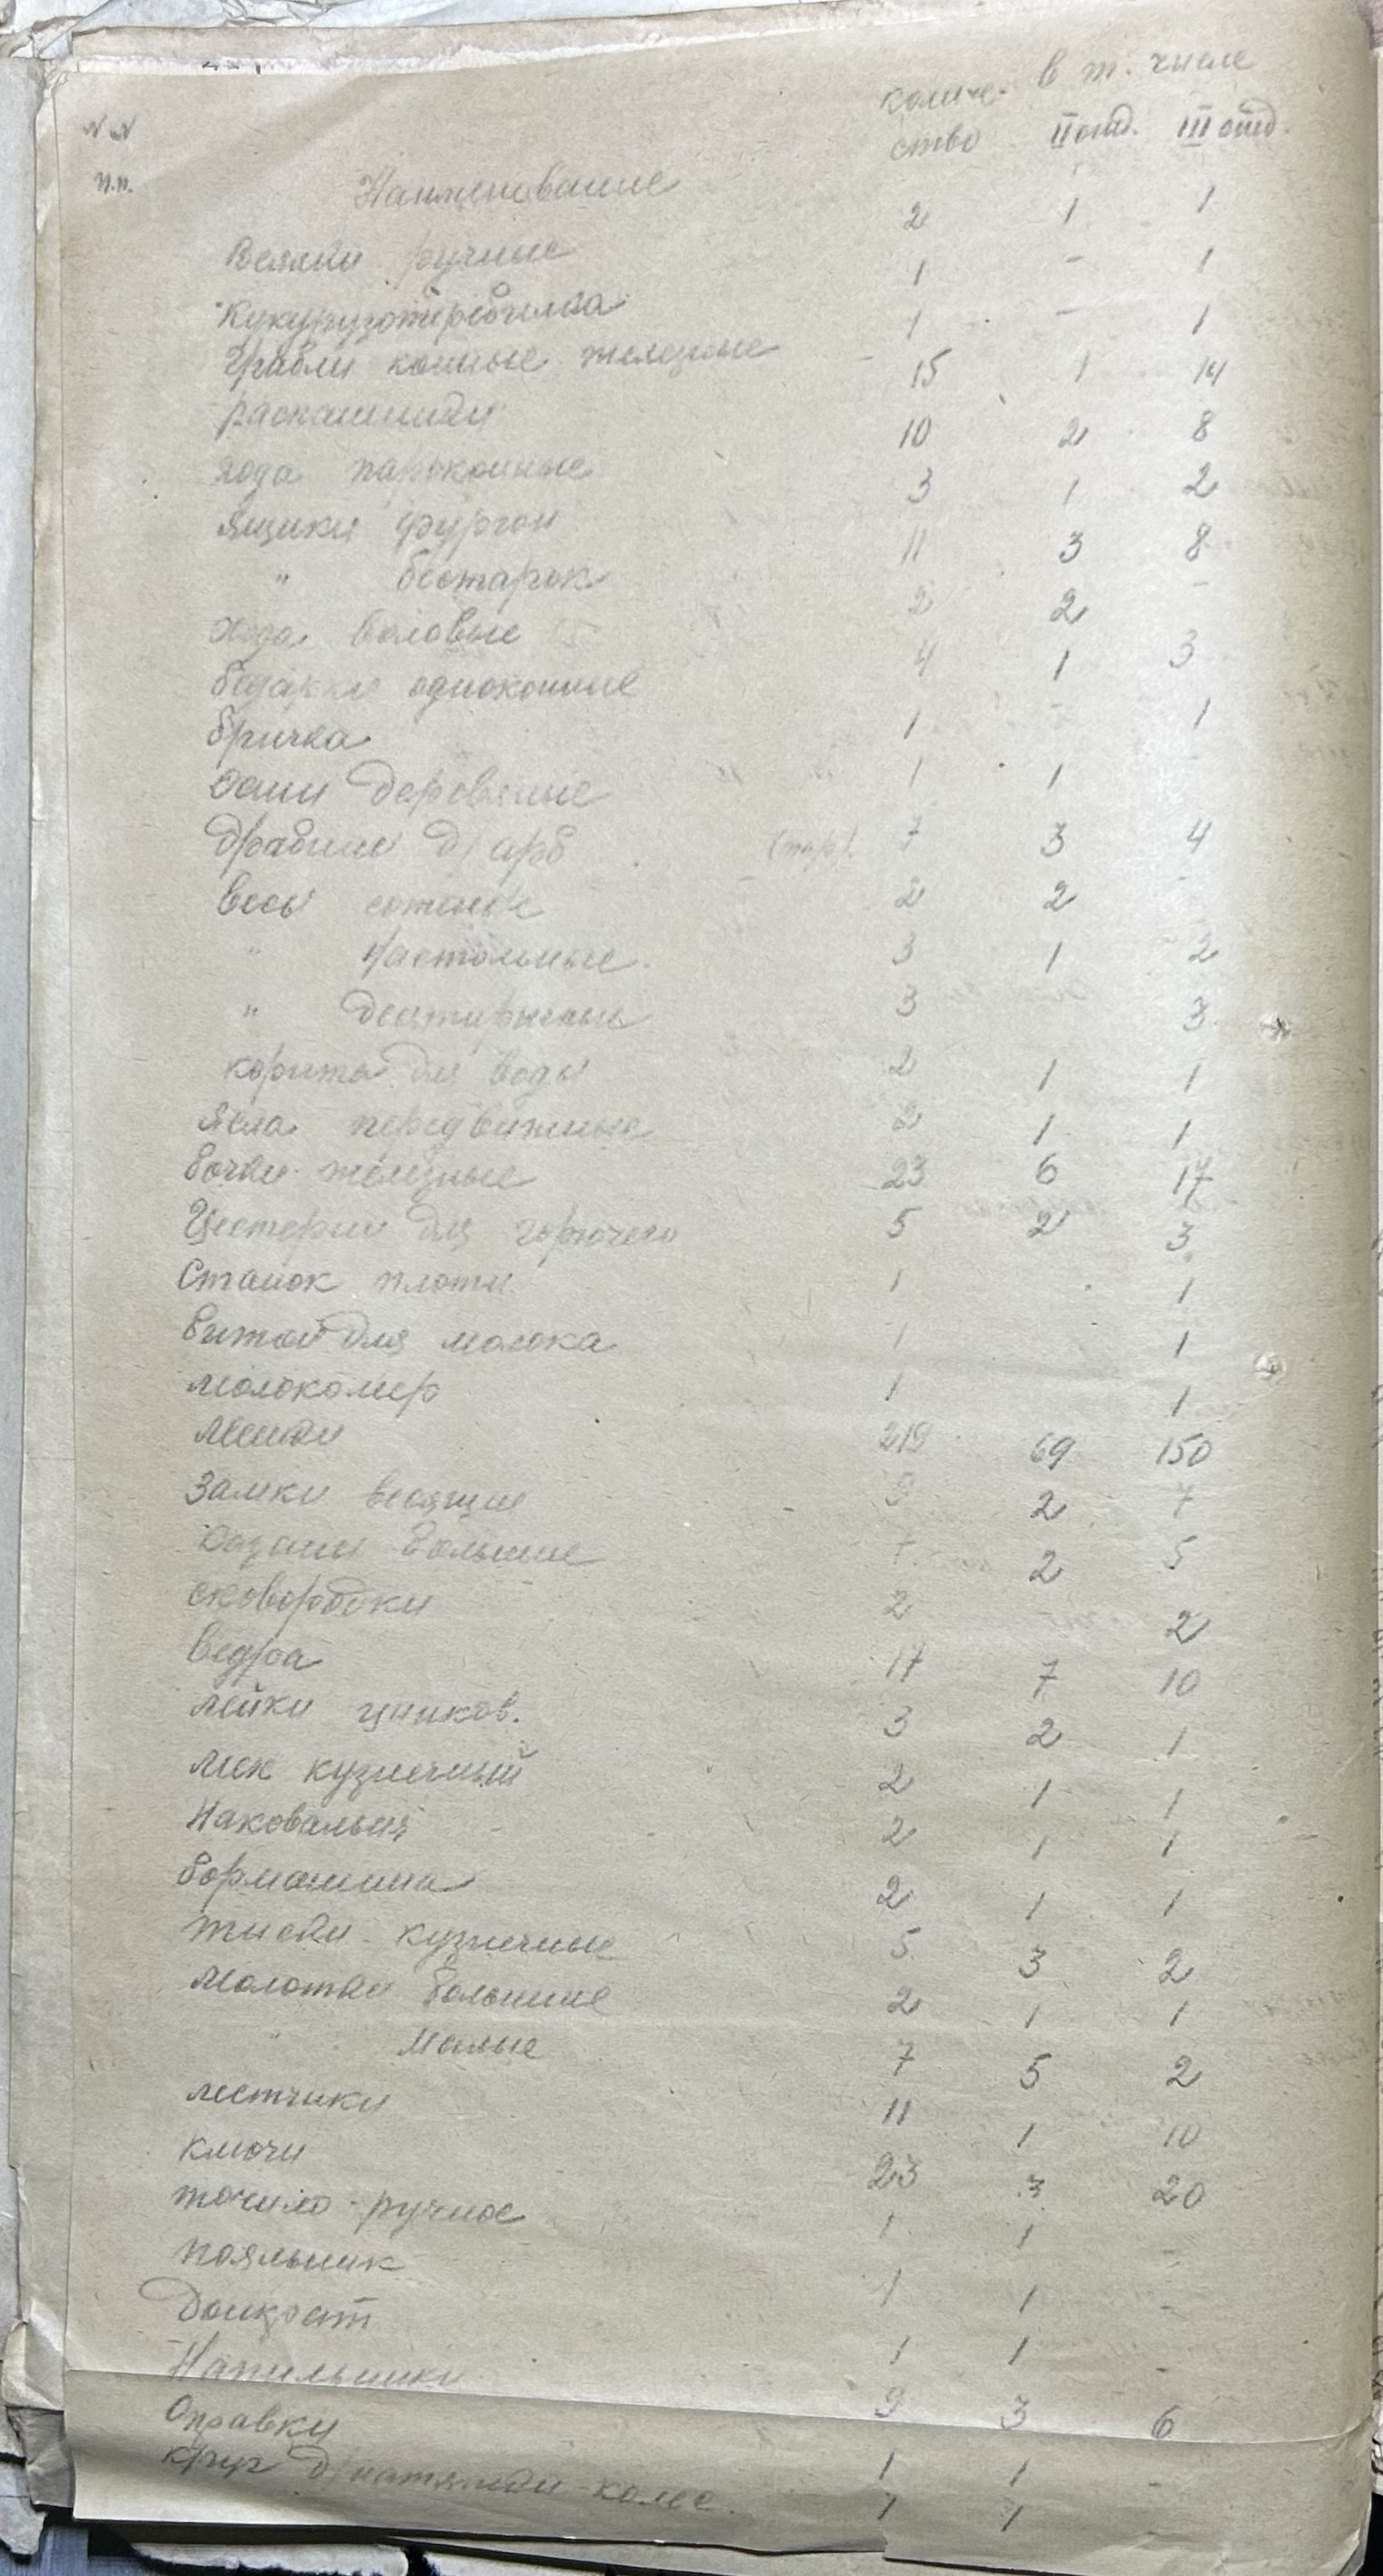 количе- в т. числе
N N ство II отд. III отд.
п.п. Наименование
Веялки ручные 2 1 1
Кукурузотеребилка 1 - 1
Грабли конные железные 1 - 1
распашники 15 1 14
хода пароконные 10 2 8
Ящики фургон 3 1 2
" бестарок 11 3 8
Хода воловые 2 2 -
бедарки одноконные 4 1 3
бричка 1 - 1
Сани деревяные 1 1 -
Драбины д/арб 7 3 4
весы сотеные 2 2 -
" Настольные 3 1 2
" десятиричные 3 3
корыта для воды 2 1 1
Ясла передвижные 2 1 1
бочки железные 23 6 17
Цистерни для горючего 5 2 3
Станок плотн. 1 1
битон для молока 1 1
молокомер 1 1
Мешки 219 69 150
Замки весящие 9 2 7
Казаны большие 7 2 5
сковородки 2 2
Ведра 17 7 10
лейки цинков. 3 2 1
Мех кузнечный 2 1 1
Наковальня 2 1 1
бормашина 2 1 1
тиски кузнечные 5 3 2
Молотки большие 2 1 1
" Малые 7 5 2
метчики 11 1 10
ключи 23 3 20
точило ручное 1 1 -
паяльник 1 1 -
Домкрат 1 1 -
Напильники 9 3 6
Оправки 1 1 -
круг д/натяжки колес. 1 1